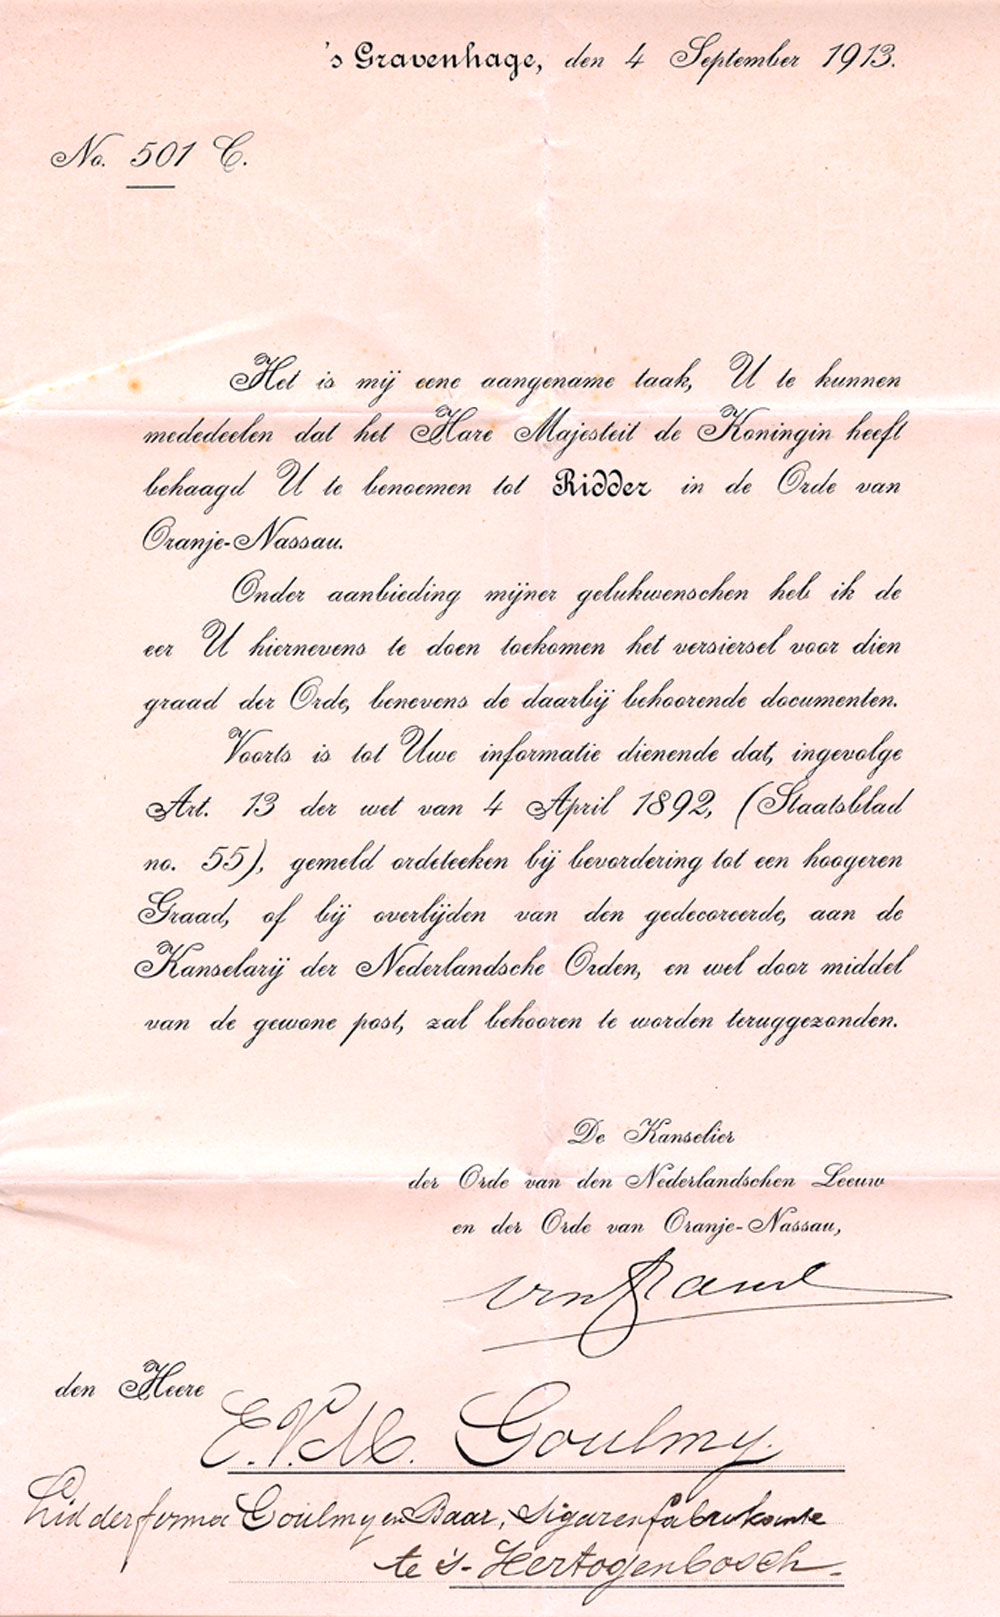 's Gravenhage, den 4 September 1913.
No. 501 C.
Het is mij eene aangename taak, U te kunnen
mededeelen dat het Hare Majesteit de Koningin heeft
behaagd U te benoemen tot Ridder in de Orde van
Oranje-Nassau.
Onder aanbieding mijner gelukwenschen heb ik de
eer U hiernevens te doen toekomen het versiersel voor dien
graad der Orde, benevens de daarbij behoorende documenten.
Voorts is tot Uwe informatie dienende dat, ingevolge
Art. 13 der wet van 4 April 1892, (Staatsblad
no. 55), gemeld ordeteeken bij bevordering tot een hoogeren
Graad, of bij overlijden van den gedecoreerde, aan de
Kanselarij der Nederlandsche Orden, en wel door middel
van de gewone post, zal behooren te worden teruggezonden.
De Kanselier
der Orde van den Nederlandschen Leeuw
en der Orde van Oranje-Nassau,
den Heere
E.V.M. Goulmy.
Lid der firma Goulmy en Baar, Sigarenfabrikante
te 's-Hertogenbosch.